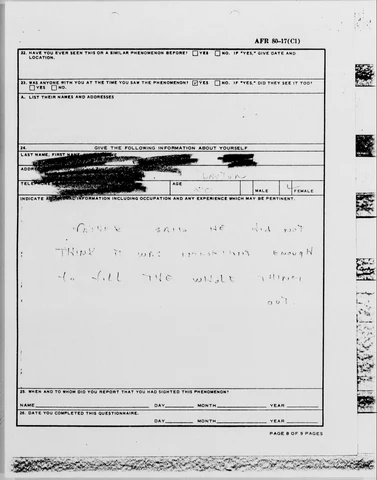 AFR 80-17(C1)
22. HAVE YOU EVER SEEN THIS OR A SIMILAR PHENOMENON BEFORE? YES NO. IF "YES," GIVE DATE AND
LOCATION.
23. WAS ANYONE WITH YOU AT THE TIME YOU SAW THE PHENOMENON? YES NO. IF "YES," DID THEY SEE IT TOO?
YES NO.
A. LIST THEIR NAMES AND ADDRESSES
24. GIVE THE FOLLOWING INFORMATION ABOUT YOURSELF
LAST NAME, FIRST NAME
ADDR
TELEPHONE AGE MALE FEMALE
INDICATE INFORMATION INCLUDING OCCUPATION AND ANY EXPERIENCE WHICH MAY BE PERTINENT.
SAID HE DID NOT
THINK IT WAS IMPORTANT ENOUGH
to fill THE WHOLE THING
OUT.
25. WHEN AND TO WHOM DID YOU REPORT THAT YOU HAD SIGHTED THIS PHENOMENON?
NAME DAY MONTH YEAR
26. DATE YOU COMPLETED THIS QUESTIONNAIRE.
DAY MONTH YEAR
PAGE 8 OF 8 PAGES